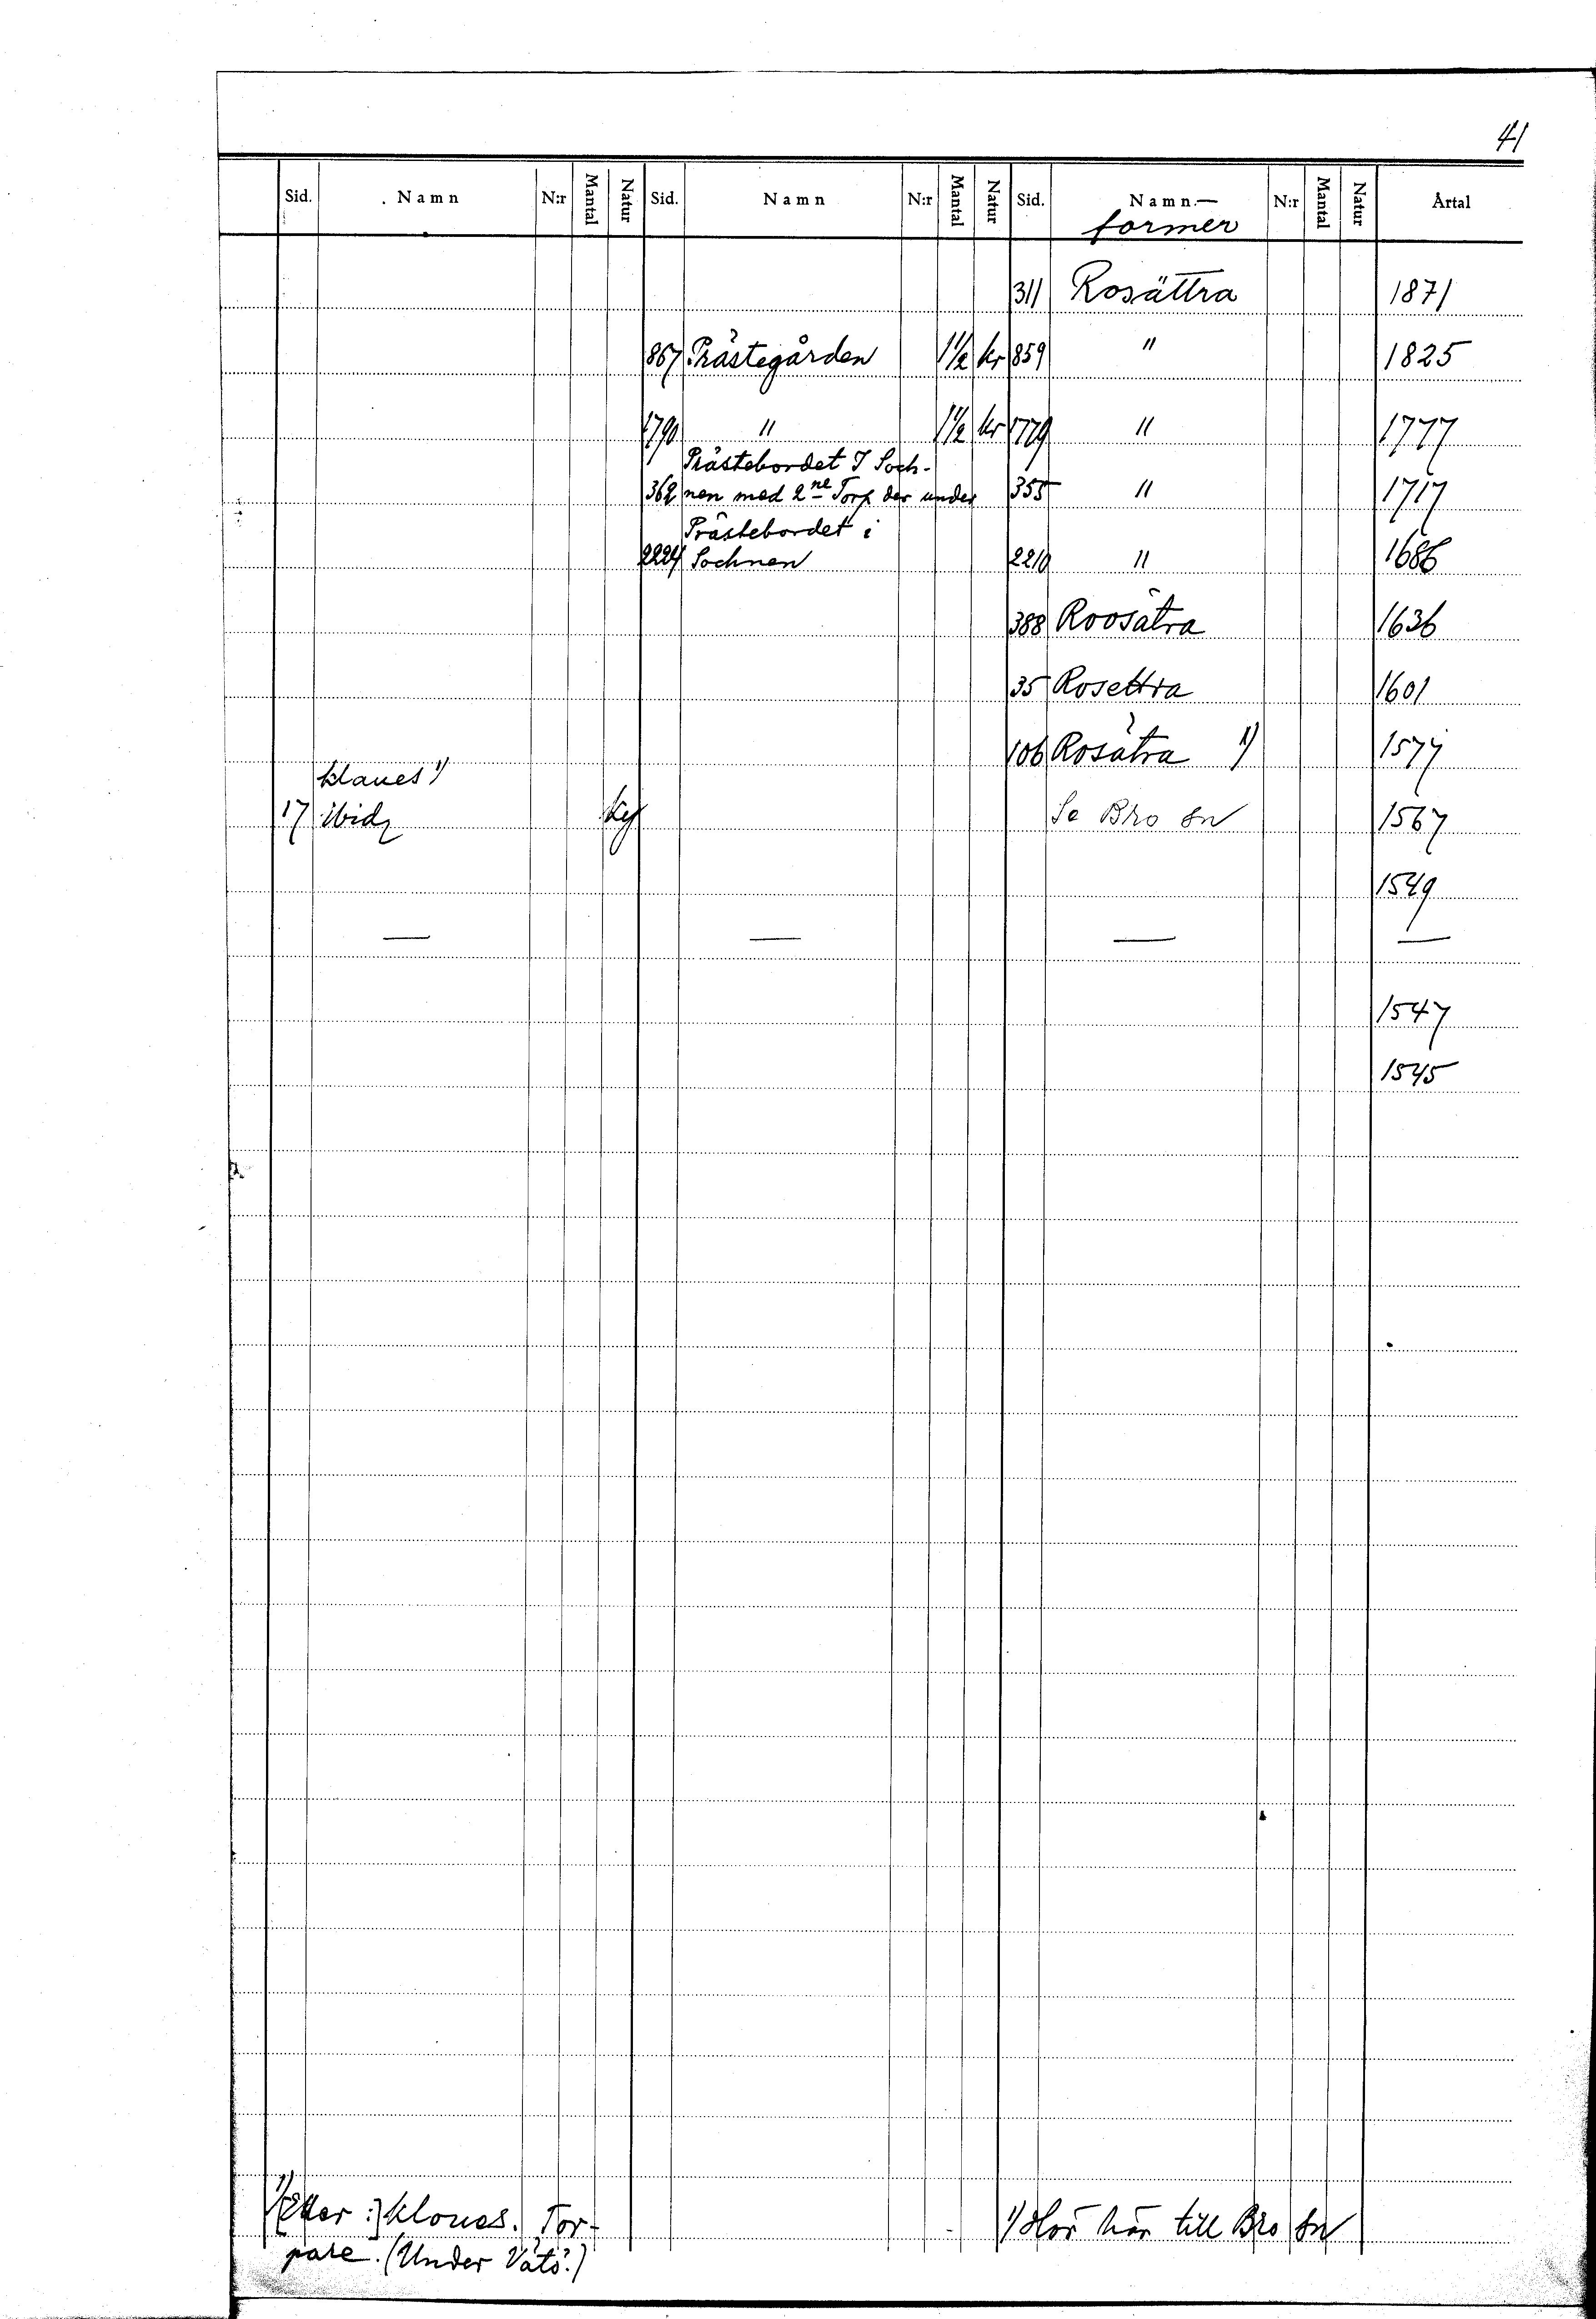 41
Sid. Namn N:r Mantal Natur Sid. Namn N:r Mantal Natur Sid. Namn.— N:r Mantal Natur Årtal
former
311 Rosättra 1871
867 Prästegården 1 1/2 kr 859 " 1825
1790 " 1 1/2 kr 1779 " 1777
Prästebordet I Soch-
362 nen med 2ne Torp der under 355 " 1717
Prästebordet i
2224 Sochnen 2210 " 1686
388 Roosätra 1636
35 Rosettra 1601
106 Rosätra 1) 1577
klaues 1)
17 ibid ky Se Bro sn 1567
1549
— — — —
1547
1545
1) [Eller :] kloues. Tor- 1) Hör här till Bro sn
pare. (Under Vätö?)